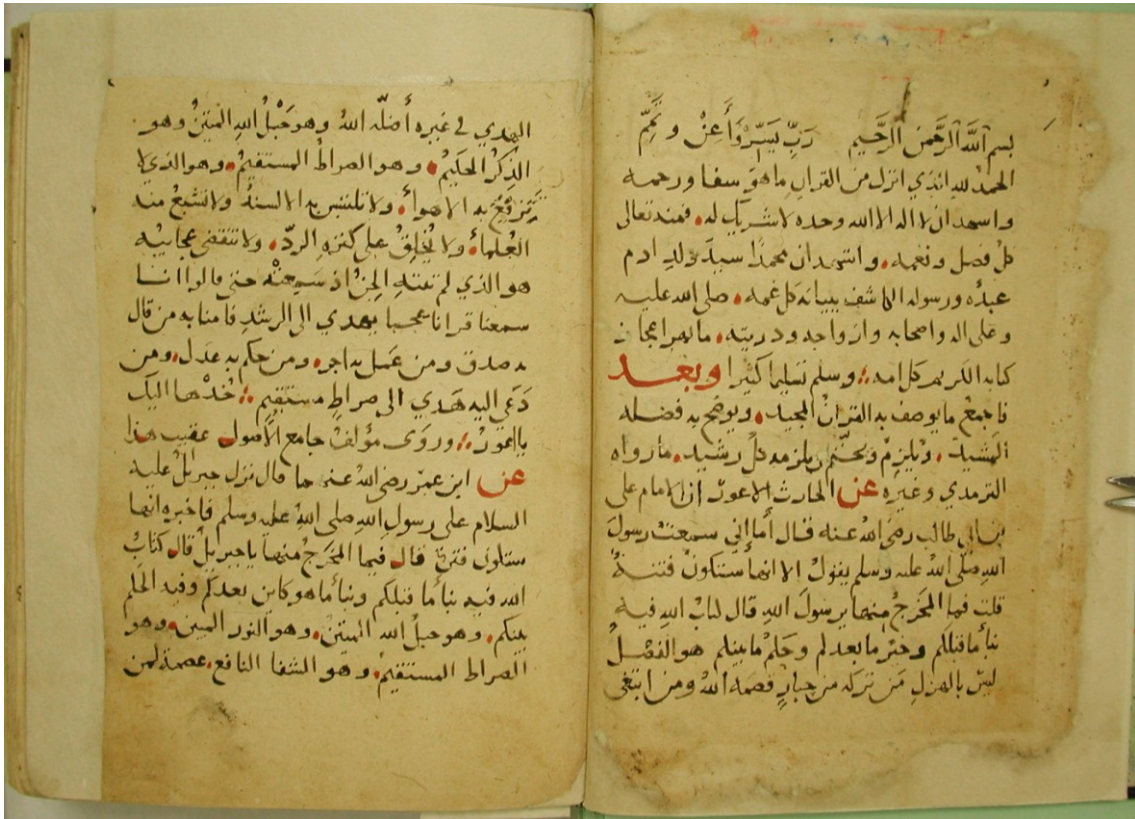 بسم الله الرحمن الرحيم رب يسر وأعن وتمم
الحمد لله الذي انزل من القران ما هو شفا ورحمه
واشهد ان لا اله الا الله وحده لا شريك له فمنه تعالى
كل فضل ونعمه واشهد ان محمدا سيد ولد ادم
عبده ورسوله الكاشف ببيانه كل غمه صلى الله عليه
وعلى اله واصحابه وازواجه وذريته ما بهر اعجاز
كتابه الكريم كل امه وسلم تسليما كثيرا وبعد
فاجمع ما يوصف به القران المجيد ويوضح به فضله
المشيد ويلزم كل رشيد ما رواه
الترمذي وغيره عن الحارث الاعور ان الامام على
بن ابي طالب رضي الله عنه قال أما إني سمعت رسول
الله صلى الله عليه وسلم يقول الا انها ستكون فتنة
قلت فما المخرج منها يرسول الله قال كتاب الله فيه
نبأ ما قبلكم وخبر ما بعدكم وحكم ما بينكم هو الفصل
ليس بالهزل من تركه من جبار قصمه الله ومن ابتغى
الهدي في غيره أضله الله وهو حبل الله المتين وهو
الذكر الحكيم وهو الصراط المستقيم وهو الذي لا
تزيغ به الاهواء ولا تلتبس به الالسنة ولا تشبع منه
العلماء ولا يخلق على كثرة الرد ولا تنقضي عجائبه
هو الذي لم تنته الجن اذ سمعته حتى قالوا انا
سمعنا قرانا عجبا يهدي الى الرشد فامنا به من قال
به صدق ومن عمل به اجر ومن حكم به عدل ومن
دعى اليه هدي الى صراط مستقيم خذها اليك
يا اعور وروى مؤلف جامع الأصول عقيب هذا
عن ابن عمر رضي الله عنهما قال نزل جبريل عليه
السلام على رسول الله صلى الله عليه وسلم فاخبره انها
ستكون فتن قال فيما المخرج منها يا جبريل قال كتاب
الله فيه نبأ ما قبلكم ونبأ ما هو كاين بعدكم وفيه الحكم
بينكم وهو حبل الله المتين وهو النور المبين وهو
الصراط المستقيم وهو الشفا النافع عصمة لمن